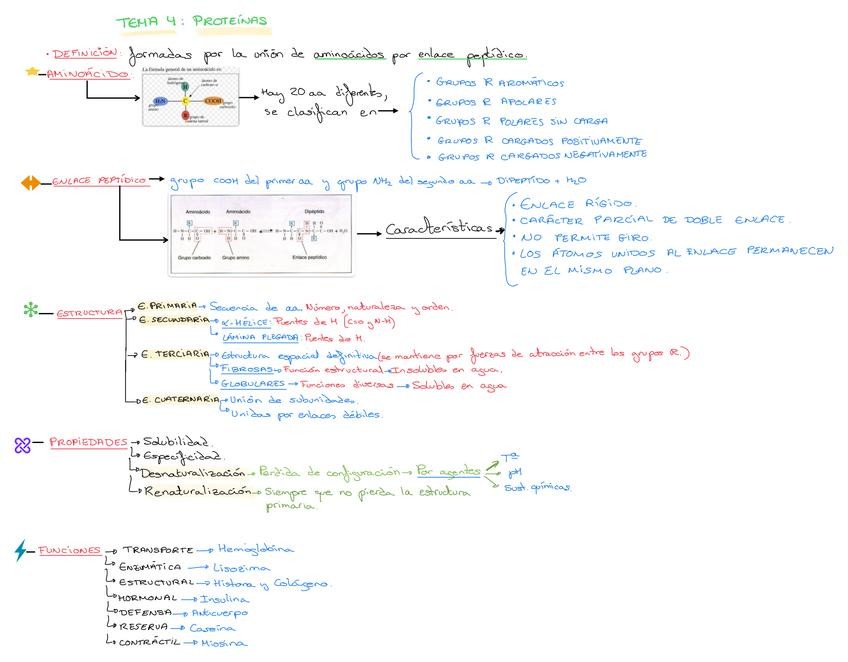 TEMA 4: PROTEÍNAS
· DEFINICIÓN: formadas por la unión de aminoácidos por enlace peptídico.
AMINOÁCIDO:
La fórmula general de un aminoácido es:
H
H₂N
C
COOH
R
grupo carboxilo
Hay 20 aa diferentes,
se clasifican en
· GRUPOS R AROMÁTICOS
· GRUPOS R APOLARES
· GRUPOS R POLARES SIN CARGA
· GRUPOS R CARGADOS POSITIVAMENTE
· GRUPOS R CARGADOS NEGATIVAMENTE
ENLACE PEPTÍDICO → grupo COOH del primer aa y grupo NH₂ del segundo aa → DIPEPTIDO + H₂O
Aminoácido Aminoácido Dipéptido
Grupo carboxilo Grupo amino Enlace peptídico
Características
· ENLACE RÍGIDO.
· CARÁCTER PARCIAL DE DOBLE ENLACE.
· NO PERMITE GIRO.
· LOS ÁTOMOS UNIDOS AL ENLACE PERMANECEN
EN EL MISMO PLANO.
ESTRUCTURA
E. PRIMARIA → Secuencia de aa. Número, naturaleza y orden.
E. SECUNDARIA → α-HÉLICE: Puentes de H (C=O y N-H)
LÁMINA PLEGADA: Puentes de H.
E. TERCIARIA → Estructura espacial definitiva (se mantiene por fuerzas de atracción entre los grupos R.)
FIBROSAS → Función estructural → Insolubles en agua.
GLOBULARES → Funciones diversas → Solubles en agua
E. CUATERNARIA → Unión de subunidades.
Unidas por enlaces débiles.
PROPIEDADES → Solubilidad.
Especificidad.
Desnaturalización → Pérdida de configuración → Por agentes
Tª
pH
Sust. químicas.
Renaturalización → Siempre que no pierda la estructura
primaria.
FUNCIONES → TRANSPORTE → Hemoglobina
ENZIMÁTICA → Lisozima
ESTRUCTURAL → Histona y Colágeno.
HORMONAL → Insulina
DEFENSA → Anticuerpo
RESERVA → Caseína
CONTRÁCTIL → Miosina